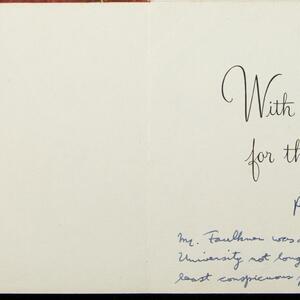 With
for th
Mr. Faulkner was
University not long
least conspicuous